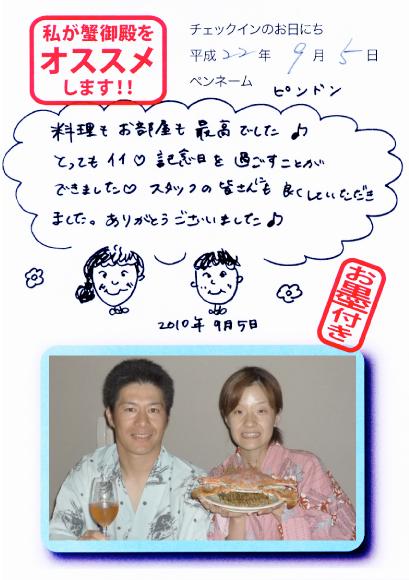 私が蟹御殿を
オススメ
します!!
チェックインのお日にち
平成22年 9月 5日
ペンネーム
ピンドン
料理もお部屋も最高でした♪
とってもイイ♡記念日を過ごすことが
できました♡スタッフの皆さんにも良くしていただき
ました。ありがとうございました♪
2010年9月5日
お墨付き